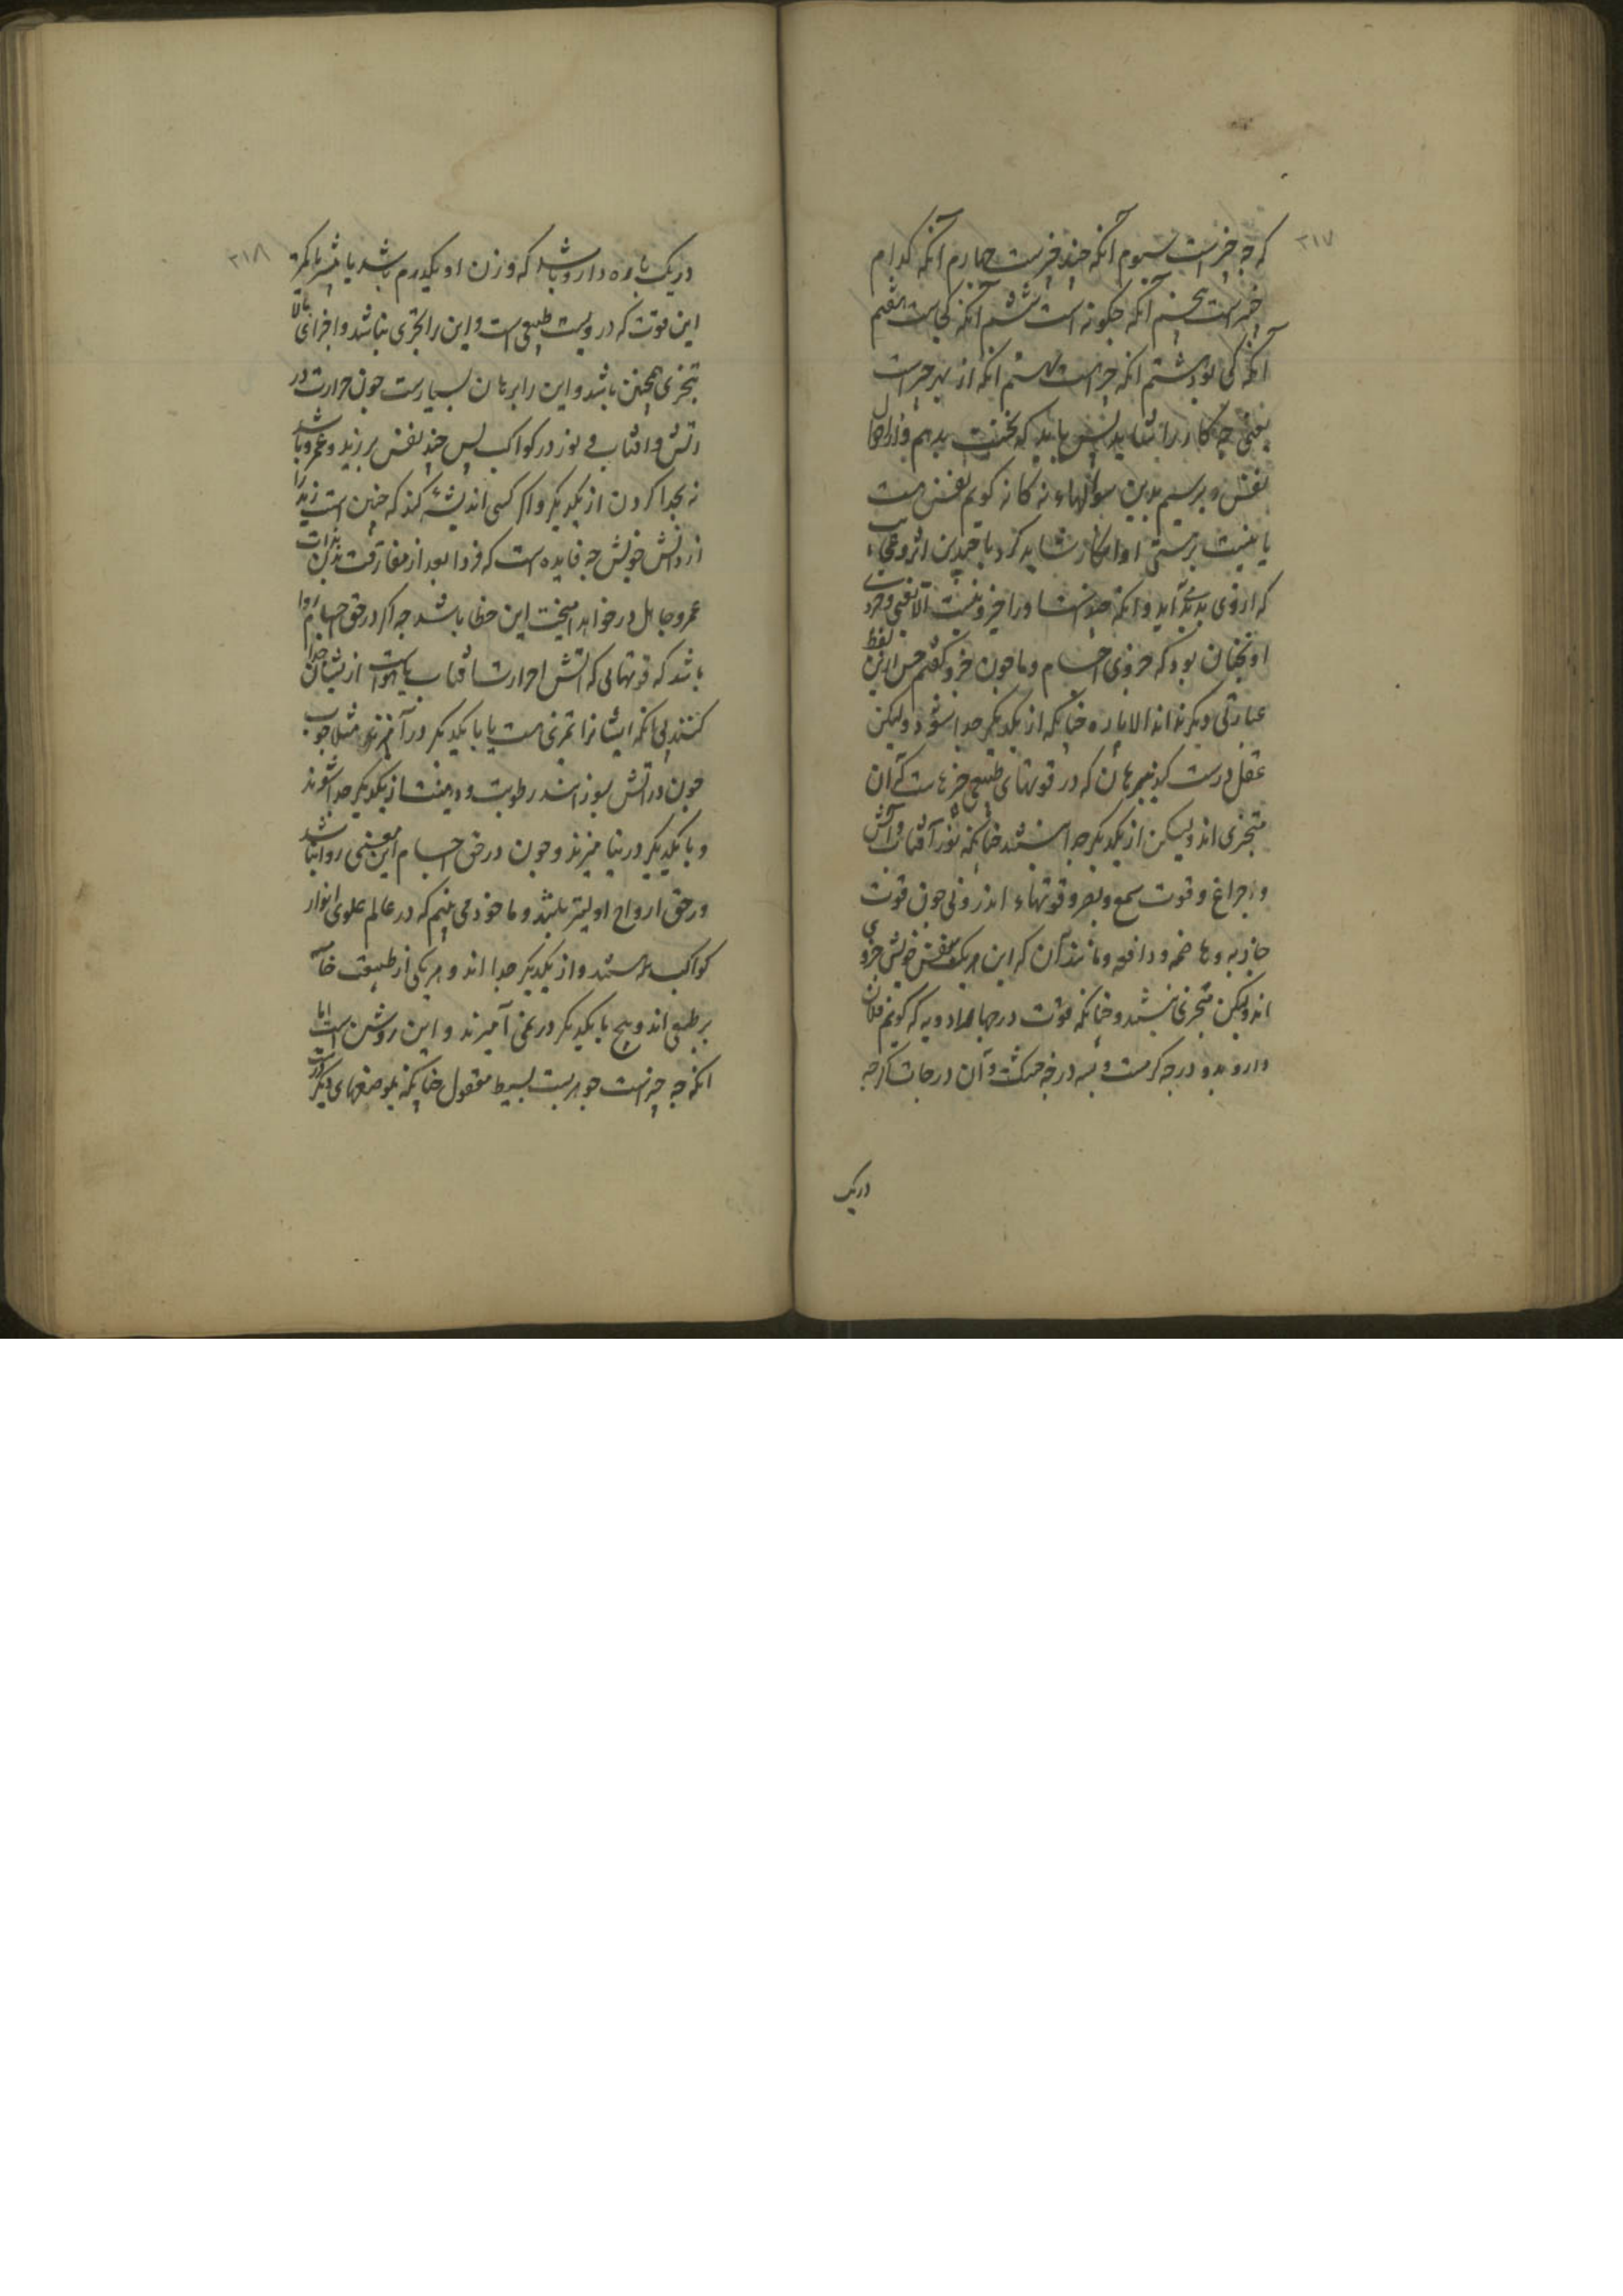 ۳۱۷
که چه چیزست سیوم آنکه چند چیزست چهارم آنکه کدام
چیزست پنجم آنکه چکونه است ششم آنکه کجاست هفتم
آنکه کی بود هشتم انکه چراست نهم انکه از بهر چراست
یعنی چه کار را شاید پس باید که نخست بدهم و از احوال
نفس برسیم بدین سوالهاء نه کانه کویم نفس هست
یا نیست برستی او انکار نشاید کرد با چندین اثر و عجایب
که از وی بدید آید و انکه چونست اورا جزو نیست الا یعنی و جزوی
او نچنان بود که جزوی اجسام و ما چون جزو کفتیم جس ازین لفظ
عبارتی دیکر نداند الا پاره چنانکه از یکدیکر جدا شود ولیکن
عقل درست کند ببرهان که در قوتهای طبیعی چیزهاست که آن
متجزی اند ولیکن از یکدیکر جدا نیستند چنانکه نور آفتاب و آتش
و چراغ و قوت سمع و بصر و قوتهاء اندرونی چون قوت
جاذبه و هاضمه و دافعه و مانند آن که این هر یک بنفس خویش جزوی
اند ولیکن متجزی نیستند و چنانکه قوت درجها ادویه که کویم فلان
دارو بدو درجه کرمست و بسه درجه خشک و آن درجات کرچه
دریک
۳۱۸
دریک پاره دارو باشد که وزن او یکدرم باشد یا بیشتر یا کمتر
این قوت که درویست طبیعی است و این را تجزی نباشد و اجزای بالا
تجزی همچنین باشد و این را برهان بسیارست چون حرارت در
آتش و آفتاب و نور در کواکب پس چند نفس بر زید و عمرو باشد
نه بجدا کردن از یکدیکر و اکر کسی اندیشه کند که چنین است زید را
از دانش خویش چه فایده است که فردا بعد از مفارقت بدن بذات
عمرو جاهل در خواهد آمیخت این خطا باشد چه اکر در حق اجسام روا
باشد که قوتهایی که آتش حرارت آفتاب یا هواست از ایشان جدا
کنند بی آنکه ایشانرا تمیزی هست یا با یکدیکر در آمیزند مثلا چوب
چون در آتش سوزانند رطوبت و دهنیت از یکدیکر جدا شوند
و با یکدیکر در نیامیزند و چون در حق اجسام این معنی روا باشد
در حق ارواح اولیتر باشد و ما خود می بینیم که در عالم علوی انوار
کواکب هستند و از یکدیکر جدا اند و هر یکی از طبیعت خاص
بر طبعی اند و هیچ با یکدیکر در نمی آمیزند و این روشن است اما
انکه چه چیزست جوهریست بسیط معقول چنانکه بموضعهای دیکر